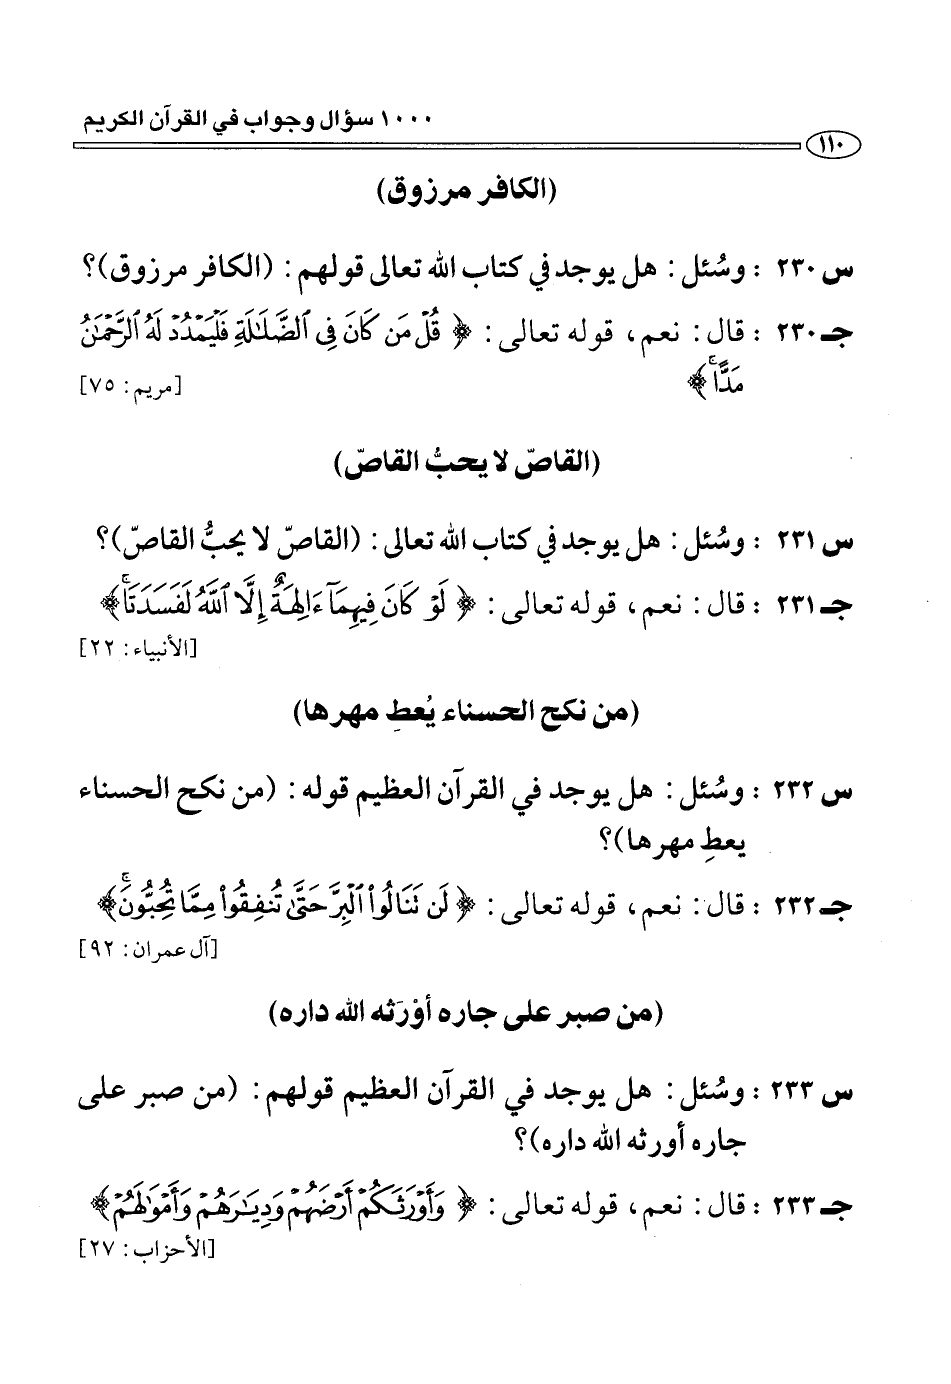 ١٠٠٠ سؤال وجواب في القرآن الكريم
١١٠
(الكافر مرزوق)
س ٢٣٠ : وسُئل : هل يوجد في كتاب الله تعالى قولهم : (الكافر مرزوق)؟
جـ ٢٣٠ : قال : نعم، قوله تعالى : ﴿ قُلْ مَن كَانَ فِى ٱلضَّلَٰلَةِ فَلْيَمْدُدْ لَهُ ٱلرَّحْمَٰنُ
مَدًّا ۚ ﴾
[مريم : ٧٥]
(القاصّ لا يحبُّ القاصّ)
س ٢٣١ : وسُئل : هل يوجد في كتاب الله تعالى : (القاصّ لا يحبُّ القاصّ)؟
جـ ٢٣١ : قال : نعم، قوله تعالى : ﴿ لَوْ كَانَ فِيهِمَآ ءَالِهَةٌ إِلَّا ٱللَّهُ لَفَسَدَتَا ۚ ﴾
[الأنبياء : ٢٢]
(من نكح الحسناء يُعطِ مهرها)
س ٢٣٢ : وسُئل : هل يوجد في القرآن العظيم قوله : (من نكح الحسناء
يعطِ مهرها)؟
جـ ٢٣٢ : قال : نعم، قوله تعالى : ﴿ لَن تَنَالُوا۟ ٱلْبِرَّ حَتَّىٰ تُنفِقُوا۟ مِمَّا تُحِبُّونَ ۚ ﴾
[آل عمران : ٩٢]
(من صبر على جاره أوْرَثه الله داره)
س ٢٣٣ : وسُئل : هل يوجد في القرآن العظيم قولهم : (من صبر على
جاره أورثه الله داره)؟
جـ ٢٣٣ : قال : نعم، قوله تعالى : ﴿ وَأَوْرَثَكُمْ أَرْضَهُمْ وَدِيَٰرَهُمْ وَأَمْوَٰلَهُمْ ﴾
[الأحزاب : ٢٧]